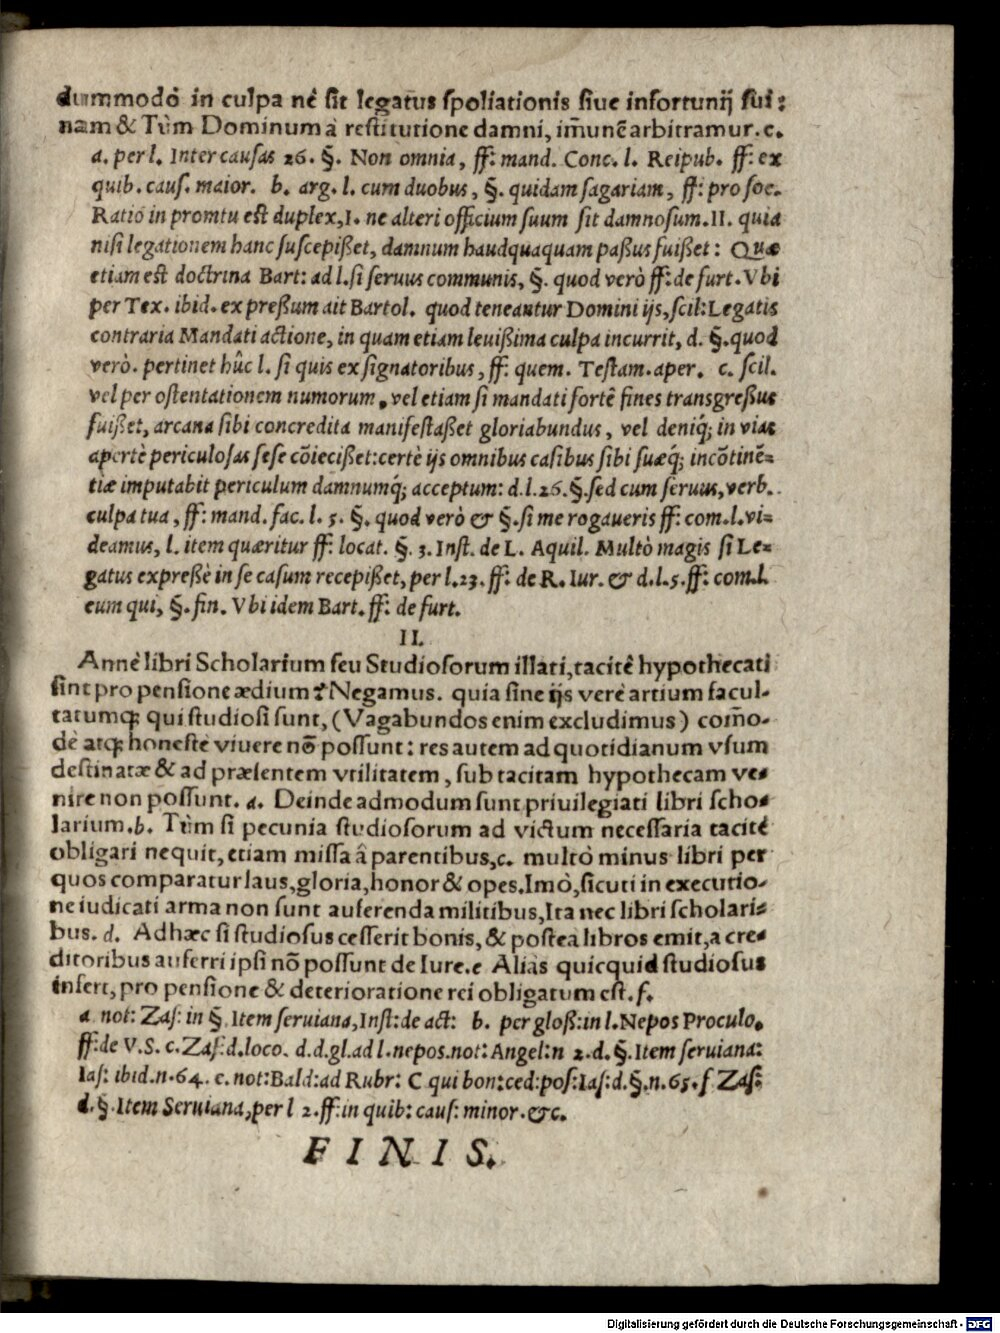 dummodò in culpa nè sit legatus spoliationis siue infortunij sui:
nam & Tùm Dominum à restitutione damni, im̃unẽ arbitramur. c.
a. per l. Inter causas 26. §. Non omnia, ff: mand. Conc. l. Reipub. ff: ex
quib. caus. maior. b. arg. l. cum duobus, §. quidam sagariam, ff: pro soc.
Ratio in promtu est duplex, I. ne alteri officium suum sit damnosum. II. quia
nisi legationem hanc suscepißet, damnum haudquaquam paßus fuißet: Quæ
etiam est doctrina Bart: ad l. si seruus communis, §. quod verò ff: de furt. Vbi
per Tex. ibid. expreßum ait Bartol. quod teneantur Domini ijs, scil: Legatis
contraria Mandati actione, in quam etiam leuißima culpa incurrit, d. §. quod
verò. pertinet hûc l. si quis ex signatoribus, ff: quem. Testam. aper. c. scil.
vel per ostentationem numorum, vel etiam si mandati fortè fines transgreßus
fuißet, arcana sibi concredita manifestaßet gloriabundus, vel deniq́; in vias
apertè periculosas sese cõiecißet: certè ijs omnibus casibus sibi suæq́; incõtinẽ-
tiæ imputabit periculum damnumq́; acceptum: d. l. 26. §. sed cum seruus, verb.
culpa tua, ff: mand. fac. l. 5. §. quod verò & §. si me rogaueris ff: com. l. vi-
deamus, l. item quæritur ff: locat. §. 3. Inst. de L. Aquil. Multò magis si Le-
gatus expreßè in se casum recepißet, per l. 23. ff: de R. Iur. & d. l. 5. ff: com. l.
eum qui, §. fin. Vbi idem Bart. ff: de furt.
II.
Annè libri Scholarium seu Studiosorum illati, tacitè hypothecati
sint pro pensione ædium? Negamus. quia sine ijs verè artium facul-
tatumq; qui studiosi sunt, (Vagabundos enim excludimus) com̃o-
dè atq; honestè viuere nõ possunt: res autem ad quotidianum vsum
destinatæ & ad præsentem vtilitatem, sub tacitam hypothecam ve-
nire non possunt. a. Deinde admodum sunt priuilegiati libri scho-
larium. b. Tùm si pecunia studiosorum ad victum necessaria tacitè
obligari nequit, etiam missa â parentibus, c. multò minus libri per
quos comparatur laus, gloria, honor & opes. Imò, sicuti in executio-
ne iudicati arma non sunt auferenda militibus, Ita nec libri scholari-
bus. d. Adhæc si studiosus cesserit bonis, & postea libros emit, a cre-
ditoribus auferri ipsi nõ possunt de Iure. e Alias quicquid studiosus
infert, pro pensione & deterioratione rei obligatum est. f.
a not: Zas: in §. Item seruiana, Inst: de act: b. per gloß: in l. Nepos Proculo,
ff: de V. S. c. Zas: d. loco. d. d. gl. ad l. nepos. not: Angel: n 2. d. §. Item seruiana:
Ias: ibid. n. 64. e. not: Bald: ad Rubr: C qui bon: ced: pos: Ias: d. §. n. 65. f Zas:
d. §. Item Seruiana, per l 2. ff: in quib: caus: minor. &c.
FINIS.
Digitalisierung gefördert durch die Deutsche Forschungsgemeinschaft - DFG